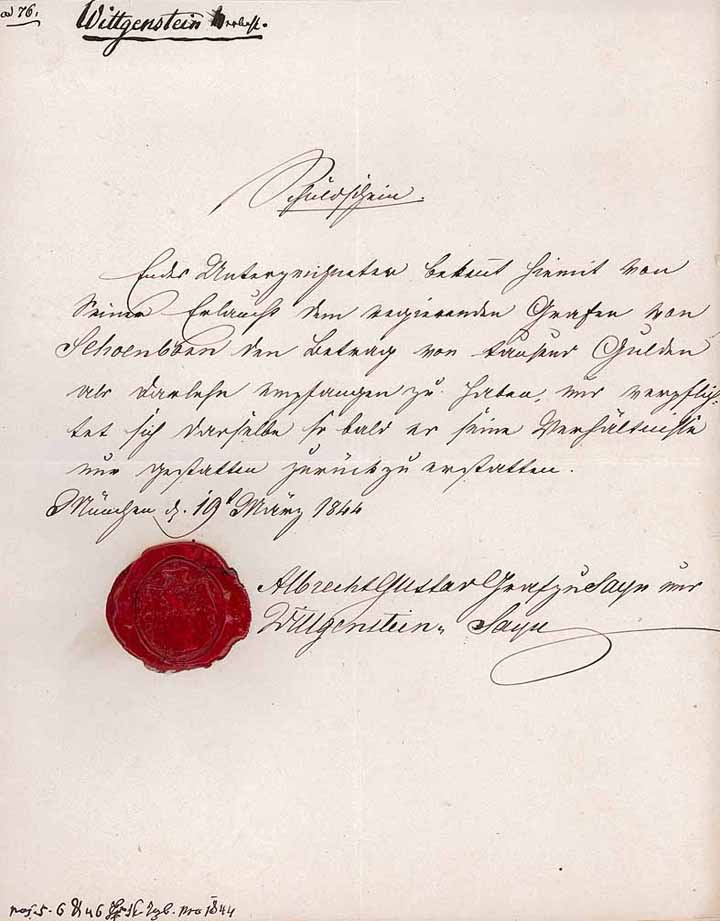 ad 76.
Wittgenstein
Schuldschein.
Endes Unterzeichneter bekent hiemit von
Seiner Erlaucht dem regierenden Grafen von
Schoenborn den Betrag von tausend Gulden
als Darlehn empfangen zu haben, und verpflich-
tet sich dasselbe so bald es seine Verhältnisse
nur gestatten zurückzu erstatten.
München d. 19t März 1844
Albrecht Gustav Graf zu Sayn und
Wittgenstein-Sayn
pos. 5. 6 pro 1844